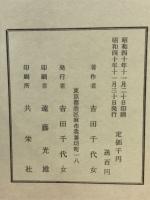 昭和四十年十一月二十日印刷
昭和四十年十一月三十日発行
定価千円
送百円
著作者 吉田千代女
東京都港区麻布我善坊町一八
発行者 吉田千代女
印刷者 遠藤光雄
印刷所 共栄社